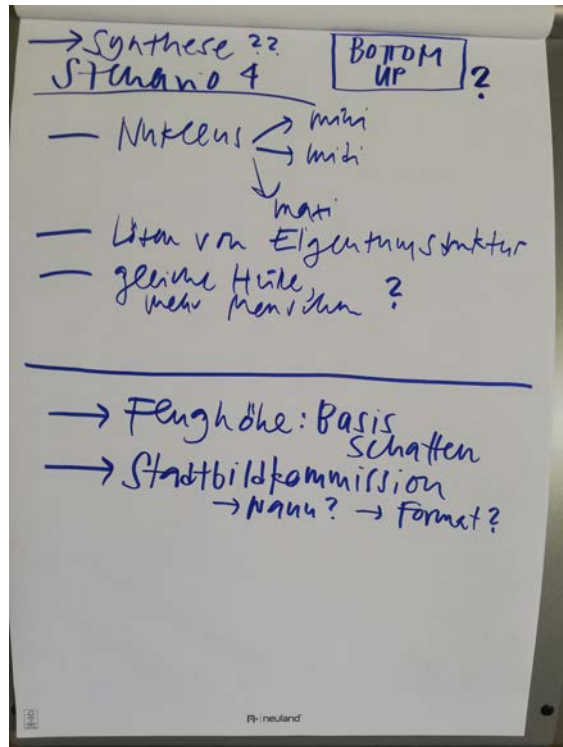 → Synthese ??
Szenario 4
BOTTOM
UP ?
— Nukleus → mini
→ midi
→ maxi
— Lösen von Eigentumstruktur
— gleiche Hülle,
mehr Menschen ?
→ Flughöhe: Basis
schaffen
→ Stadtbildkommission
→ Wann? → Format?
neuland